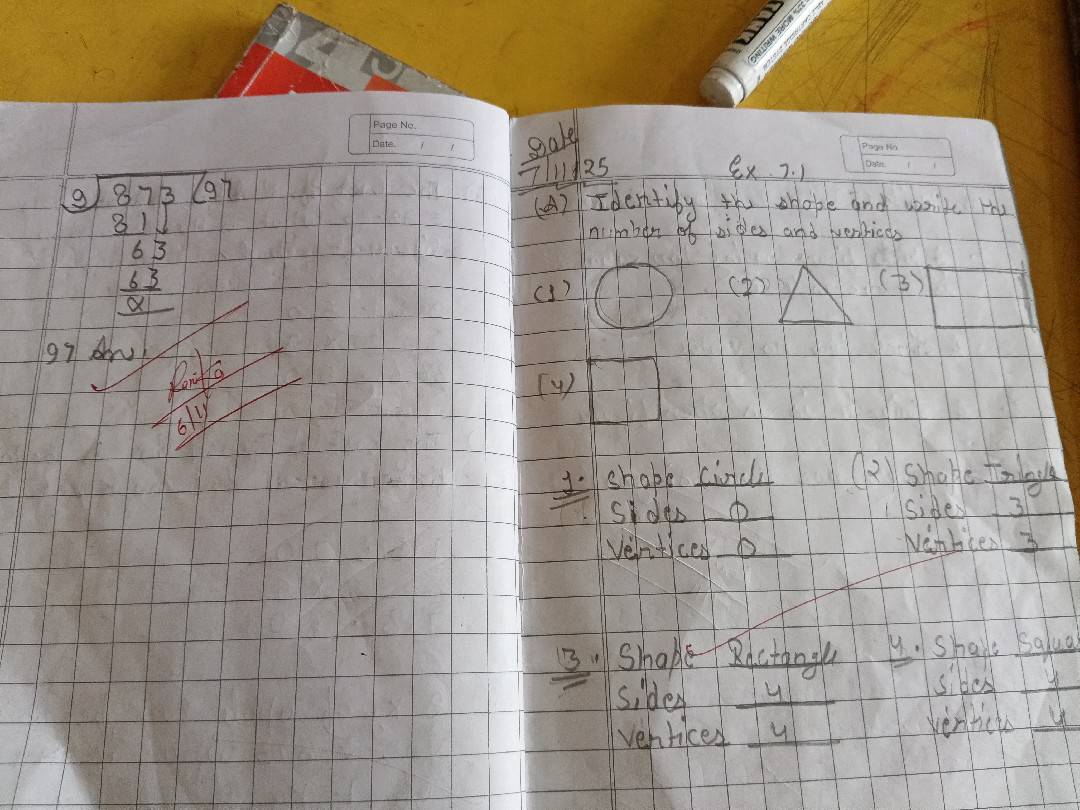 Page No.
Date. / /
9) 873 (97
81↓
63
63
0
97 Ans.
6/11
Page No
Date. / /
Date
7/11/25
Ex 7.1
(A) Identify the shape and write the
number of sides and vertices
(1) (2) (3)
(4)
1. Shape Circle
Sides 0
Vertices 0
(2) Shape
Sides 3
Vertices 3
3. Shape Rectangle
Sides 4
Vertices 4
4. Shape Squa
sides 4
vertices 4